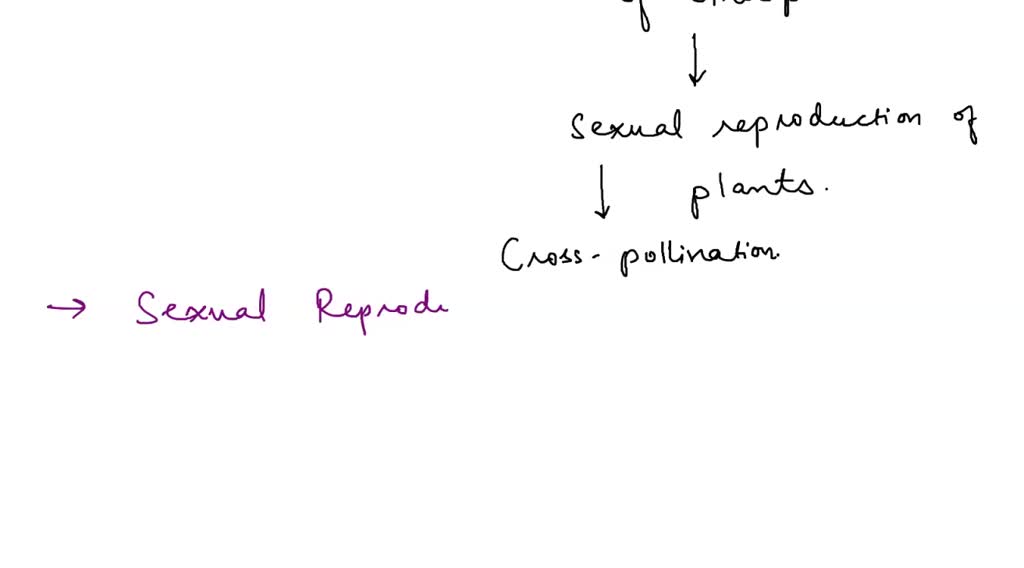 of
Sexual reproduction of
plants.
Cross-pollination.
→ Sexual Reprodu